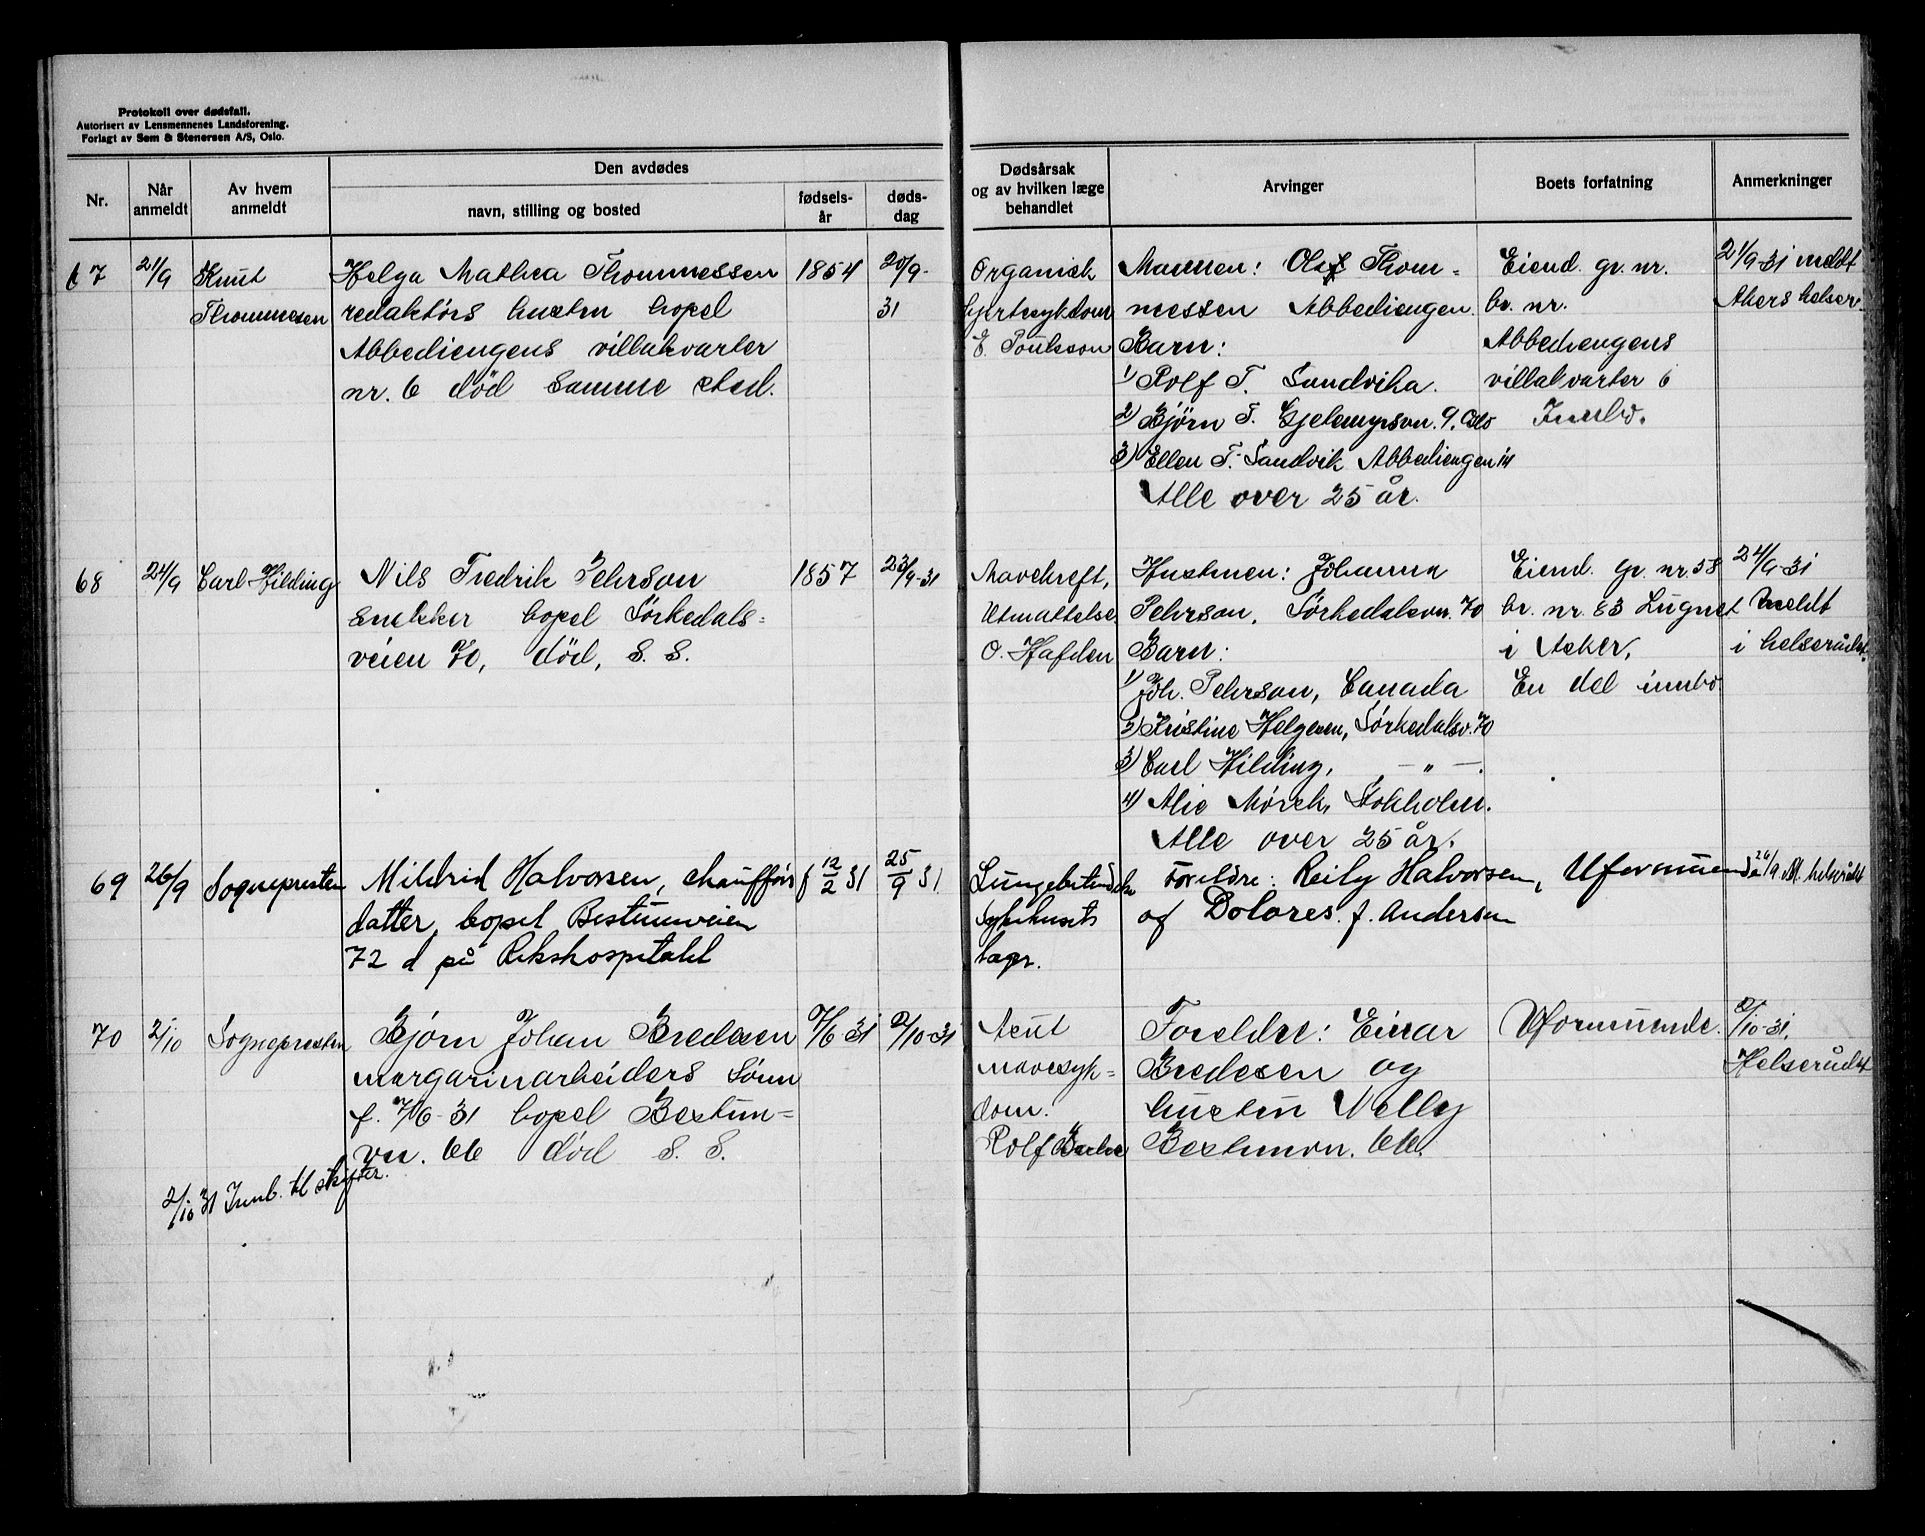 Protokoll over dødsfall.
Autorisert av Lensmennenes Landsforening.
Forlagt av Sem & Stenersen A/S, Oslo.
Nr.
Når anmeldt
Av hvem anmeldt
Den avdødes
navn, stilling og bosted
fødsels-år
døds-dag
Dødsårsak og av hvilken læge behandlet
Arvinger
Boets forfatning
Anmerkninger
67
21/9
Knut
Thommesen
Helga Mathea Thommessen
redaktørs hustru bopel
Abbediengens villakvarter
nr. 6 død samme sted.
1854
20/9-
31
Organisk
hjertesykdom
E. Poulsson
Mannen: Olaf Thom-
messen Abbediengen.
Barn:
1) Rolf T. Sandvika.
2) Bjørn T. Gjelemyrsvn. 9. Oslo
3) Ellen T. Sandvik Abbediengen 14
Alle over 25 år.
Eiend. gr. nr.
br. nr.
Abbediengens
villakvarter 6
Innbo.
21/9-31 meldt
Akers helser.
68
24/9
Carl Hilding
Nils Fredrik Pehrson
snekker bopel Sørkedals-
veien 70, død, S. S.
1857
23/9-31
Mavekreft,
Utmattelse
O. Hafden
Hustruen: Johanna
Pehrson, Sørkedalsvn. 70
Barn:
1) Joh. Pehrson, Canada
2) Kristine Helgesen, Sørkedalsv. 70
3) Carl Hilding, — " —.
4) Alie Mørck, Stokholm.
Alle over 25 år.
Eiend. gr. nr. 58
br. nr. 83 Lugnet
i Aker,
En del innbo.
24/9-31
meldt
i helserådet.
69
26/9
Sognepresten
Mildrid Halvorsen, chaufførs
datter, bopel Bestumveien
72 d på Rikshospitalet
f 12/2 31
25/9 31
Lungebetendelse
Sykehusets
læger.
Foreldre: Reily Halvorsen,
og Dolores f. Andersen
Uformuende
26/9 Mt. helserådet
70
2/10
Sognepresten
Bjørn Johan Bredesen
margarinarbeiders sønn
f. 7/6-31 bopel Bestum-
vn. 66 død S. S.
7/6-31
2/10-31
Acut
mavesyk-
dom.
Rolf
Foreldre: Einar
Bredesen og
hustru Nelly
Bestumvn. 66.
Uformuende.
2/10-31.
Helserådet
2/10 31 Innb. til skifter.